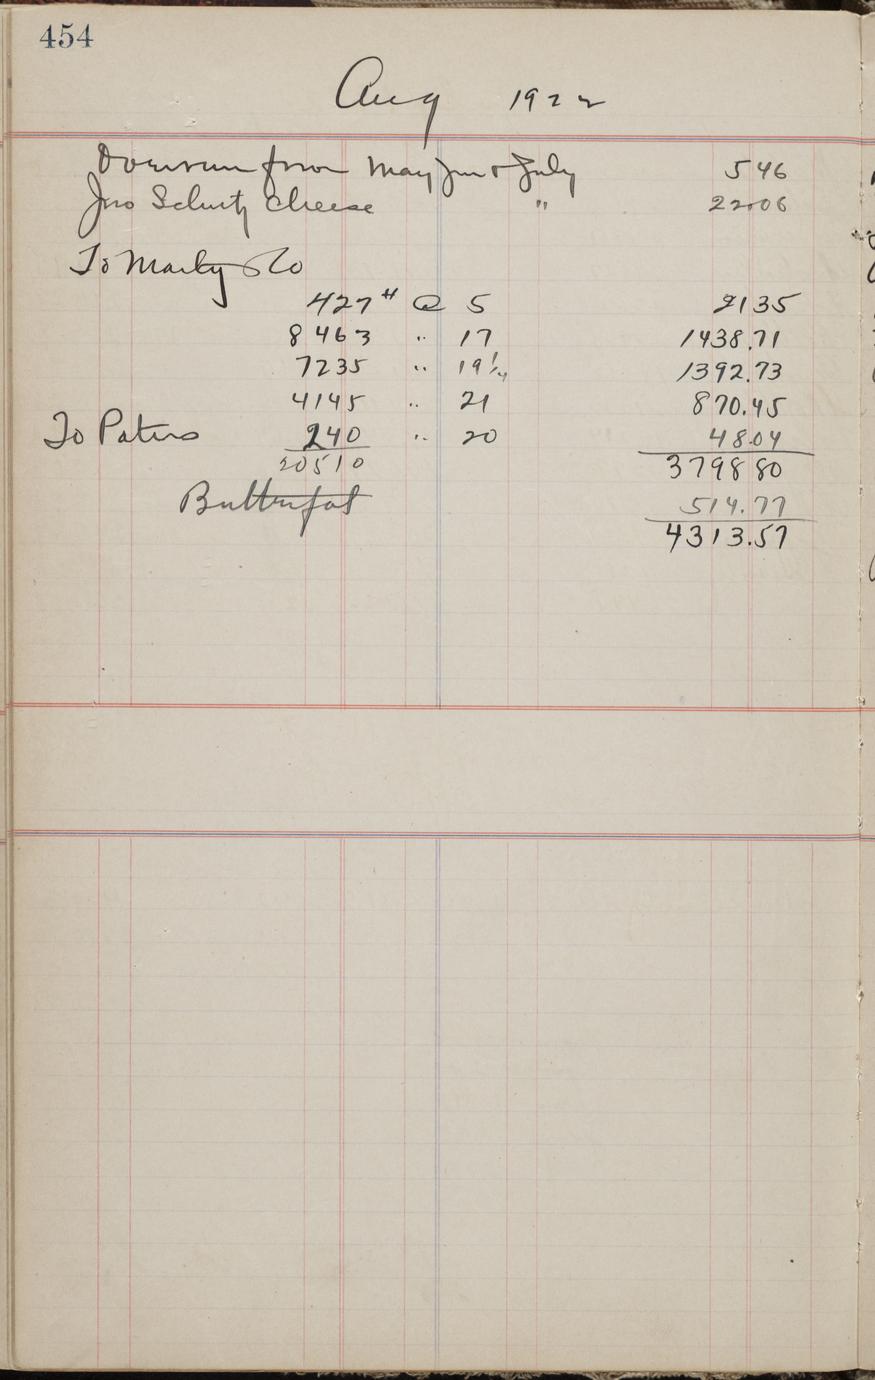 454
Aug 1922
Overrun from May Jun & July 546
Jno Schutz Cheese " 22.06
To Marty & Co
427# @ 5 2135
8463 " 17 1438.71
7235 " 19 1/4 1392.73
4145 " 21 870.45
To Patros 240 " 20 48.04
20510 3798 80
Butterfat 514.77
4313.57